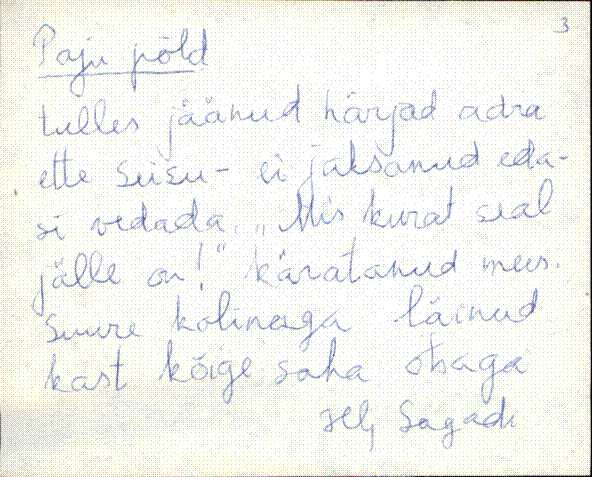 3
Paju põld
tulles jäänud härjad adra
ette seisu - ei jaksanud eda-
si vedada. „Mis kurat seal
jälle on!" käratanud mees.
Suure kolinaga läinud
kast kõige saha otsaga
Hlj, Sagadi